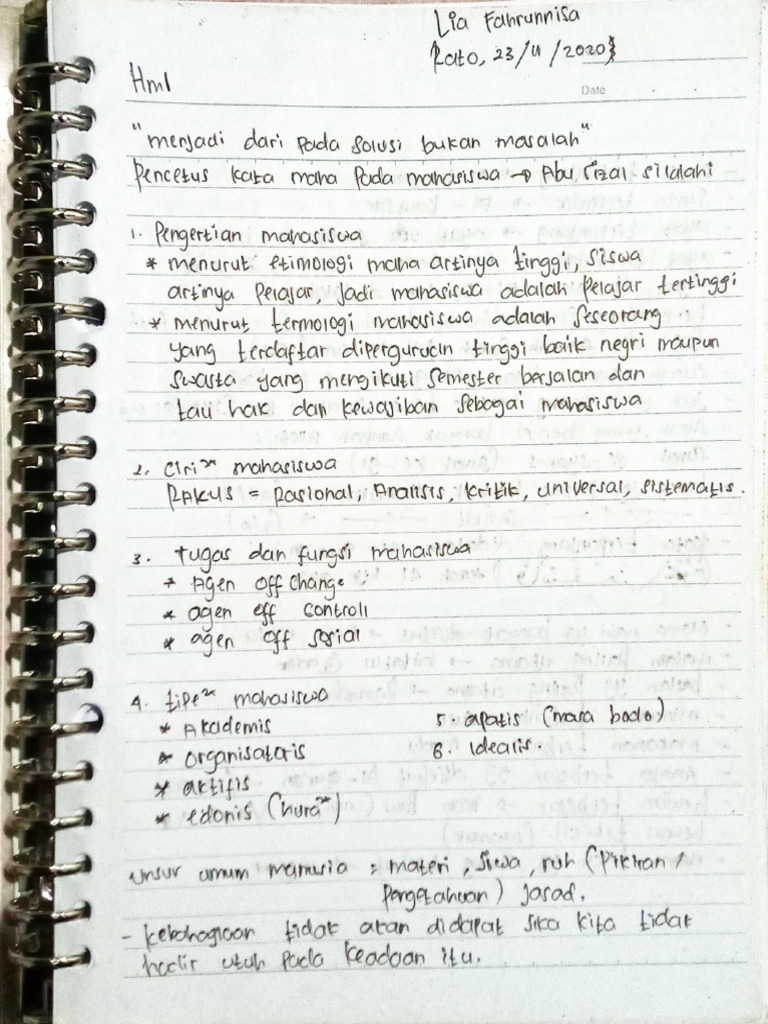 Lia Fahrunnisa
Rato, 23/11/2023
Date
HmI
"menjadi dari pada solusi bukan masalah"
Pencetus kata maha pada mahasiswa → Abu Rizal silalahi
1. Pengertian mahasiswa
* menurut etimologi maha artinya tinggi, siswa
artinya pelajar, Jadi mahasiswa adalah pelajar tertinggi
* menurut termologi mahasiswa adalah seseorang
yang terdaftar diperguruan tinggi baik negri maupun
swasta yang mengikuti semester berjalan dan
tau hak dan kewajiban sebagai mahasiswa
2. Ciri²ⁿ mahasiswa
RAKUS = Rasional, Analisis, kritik, universal, sistematis.
3. tugas dan fungsi mahasiswa
* Agen off Change
* agen off controll
* agen off sosial
4. tipe²ⁿ mahasiswa
* Akademis 5. apatis (masa bodo)
* organisatoris 6. Idealis.
* aktifis
* edonis (hura²ⁿ)
unsur umum manusia = materi, siwa, ruh (Pikiran /
pengetahuan) Jasad.
- kebahagiaan tidak akan didapat sika kita tidak
hadir utuh pada keadaan itu.